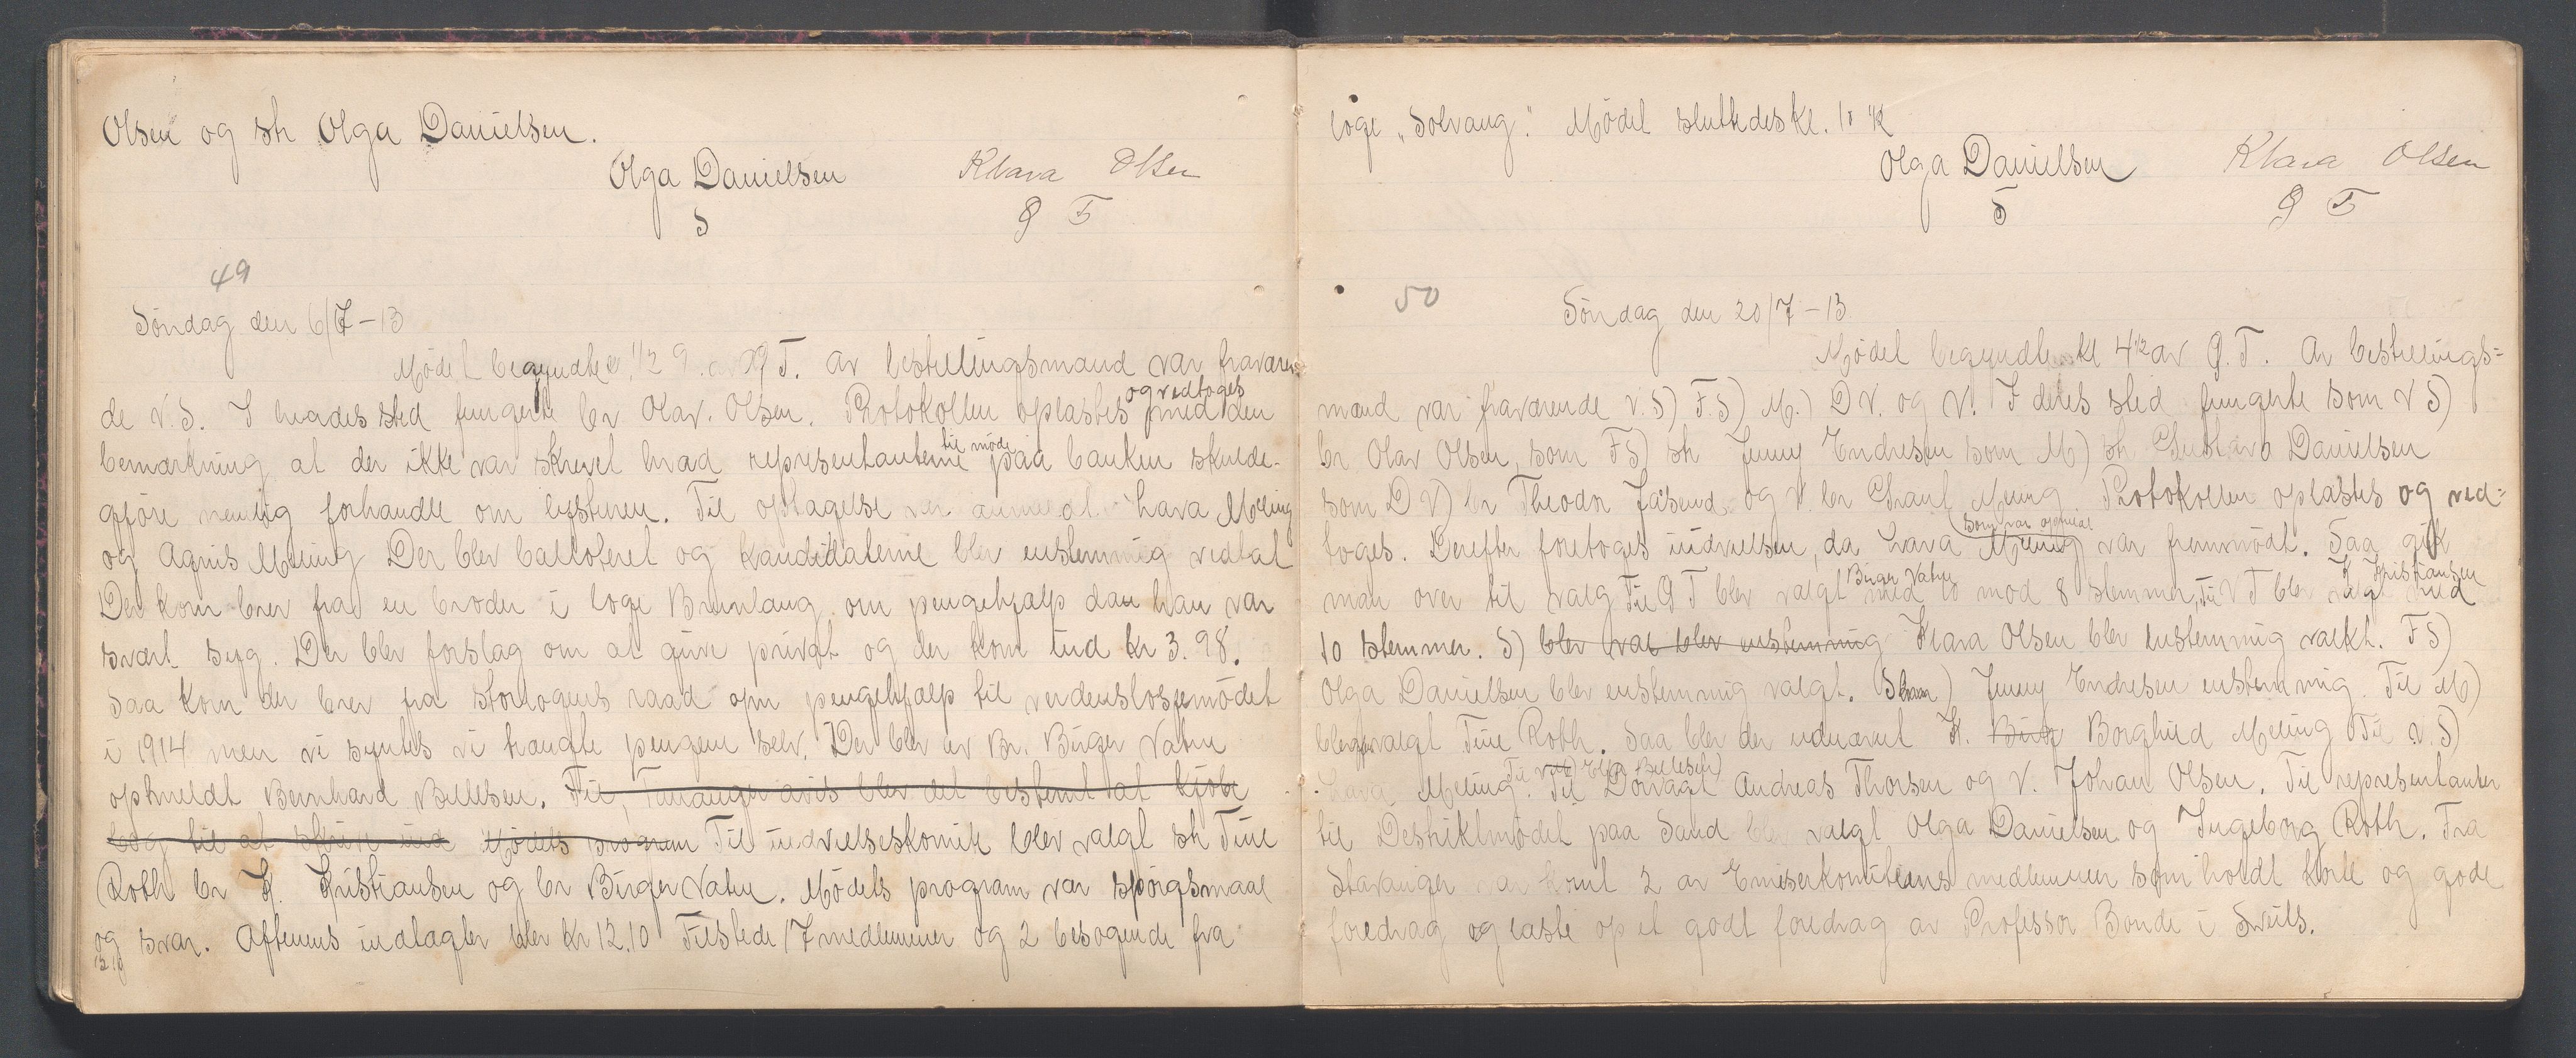 Olsen og str Olga Danielsen.
Olga Danielsen Klara Olsen
S G T
49
Søndag den 6/7-13
Mødet begyndte 1/2 9 av G T. Av bestillingsmænd var fraværen-
de V.S. I hvades sted fungerte br Olav. Olsen. Protokollen oplæstes og vedtoges med den
bemærkning at der ikke var skrevet hvad representanterne til møde paa banken skulde
gjøre nemlig forhandle om lysturen. Til optagelse var anmeldt Lava Meling
og Agnis Meling Der blev balloteret og kandidaterne blev enstemmig vedtat
Der kom brev fra en broder i loge Brunlaug om pengehjælp dan han var
svært syg. Der blev forslag om at give privat og der kom ind kr 3.98.
Saa kom der brev fra storlogens raad om pengehjælp til verdenslosjemødet
i 1914 men vi syntes vi trængte pengene selv. Der blev av Br. Birger Vatne
opmeldt Bernhard Bellesen. Til, Tananger avis blev det bestemt at kjøbe
bog til at skrive ind Mødets program Til indvielseskomite blev valgt str Tine
Roth br K. Kristiansen og br Birger Vatne. Mødets program var spørgsmaal
og svar. Aftenens indtægter blev kr 12.10 Tilstede 17 medlemmer og 2 besøgende fra
12 10
loge „Solvang". Mødet sluttedes kl. 10 1/2
Olga Danielsen Klara Olsen
S G T
50
Søndag den 20/7-13.
Mødet begyndte kl 4 1/2 av G. T. Av bestillings=
mænd var fraværende V.S) F.S) M.) D V. og V. I deres sted fungerte som V S)
br Olav Olsen, som F S) str Jenny Endresen som M) str Gustava Danielsen
som D V) br Theodor Jåsund og V. br Meling. Protokollen oplæstes og ved=
toges. Derefter foretoges indvielsen, da Lava Meling som var opmeldt var fremmødt. Saa gik
man over til valg Til G T blev valgt Birger Vatne med 10 mod 8 stemmer, Til V T blev valgt K Kristiansen med
10 stemmer. S) blev val blev enstemmig Klara Olsen blev enstemmig valkt. F S)
Olga Danielsen blev enstemmig valgt. Jenny Endresen enstemmig. Til M)
blev valgt Tine Roth. Saa blev der utnævnt K. Birg Borghild Meling Til V.S)
Lava Meling. Til V M) Elen Bellesen) Til D vagt Andreas Thorsen og V. Johan Olsen. Til representanter
til Destriktmødet paa Sand blev valgt Olga Danielsen og Ingeborg Roth. Fra
Stavanger var komt 2 av Emiserkomiteens medlemmer som holdt korte og gode
foredrag og læste op et godt foredrag av Professor Bonde i Sveits.